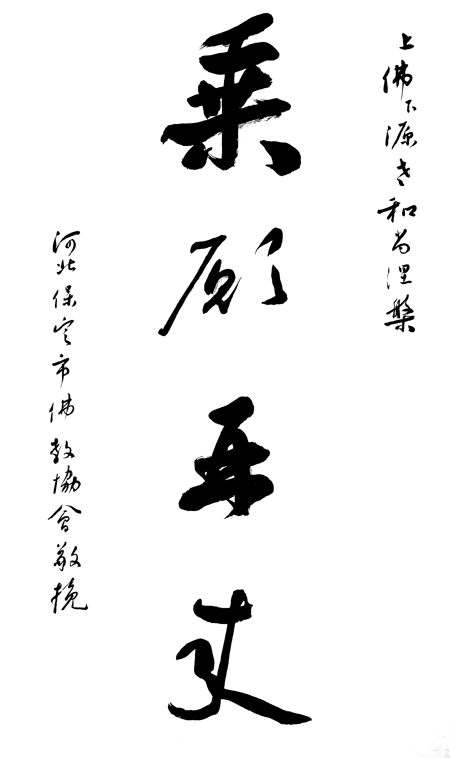 上佛下源老和尚涅槃
乘願再来
河北保定市佛教協會敬挽